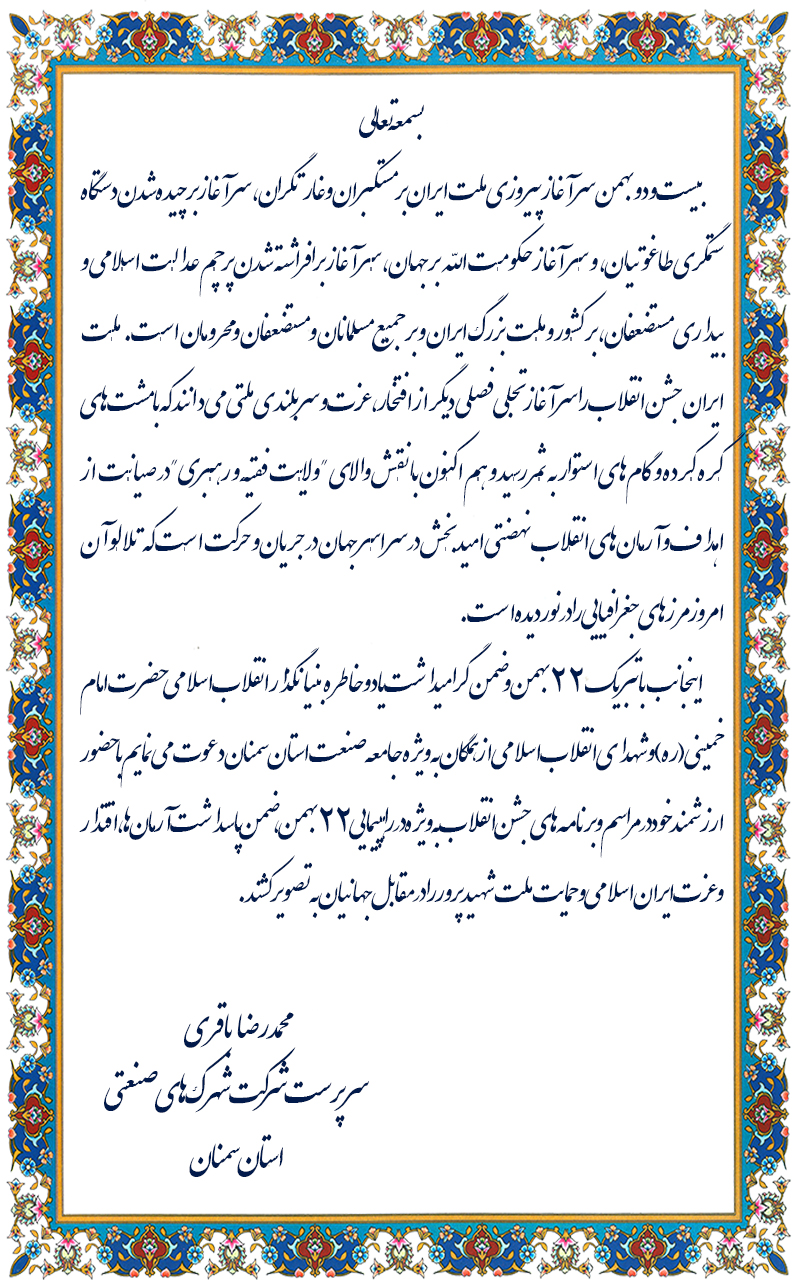 بسمعه تعالی
بیست و دو بهمن سرآغاز پیروزی ملت ایران بر مستکبران و غارتگران، سرآغاز برچیده شدن دستگاه
ستمگری طاغوتیان، و سرآغاز حکومت الله بر جهان، سرآغاز برافراشته شدن پرچم عدالت اسلامی و
بیداری مستضعفان، بر کشور و ملت بزرگ ایران و بر جمیع مسلمانان و مستضعفان و محرومان است. ملت
ایران جشن انقلاب را سرآغاز تجلی فصلی دیگر از افتخار، عزت و سربلندی ملتی می دانند که با مشت های
گره کرده و گام های استوار به ثمر رسید و هم اکنون با نقش والای "ولایت فقیه و رهبری" در صیانت از
اهداف و آرمان های انقلاب نهضتی امیدبخش در سراسر جهان در جریان و حرکت است که تلالو آن
امروز مرزهای جغرافیایی را درنوردیده است.
اینجانب با تبریک ۲۲ بهمن و ضمن گرامیداشت یاد و خاطره بنیانگذار انقلاب اسلامی حضرت امام
خمینی(ره) و شهدای انقلاب اسلامی از همگان به ویژه جامعه صنعت استان سمنان دعوت می نمایم با حضور
ارزشمند خود در مراسم و برنامه های جشن انقلاب به ویژه در راهپیمایی ۲۲ بهمن، ضمن پاسداشت آرمان ها، اقتدار
و عزت ایران اسلامی و حمایت ملت شهیدپرور را در مقابل جهانیان به تصویر کشند.
محمدرضا باقری
سرپرست شرکت شهرک های صنعتی
استان سمنان